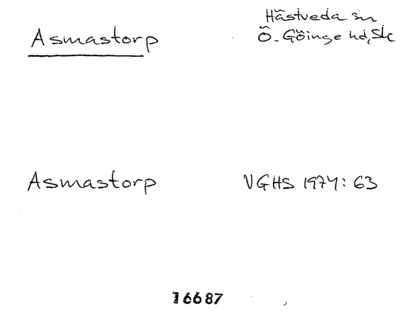 Asmastorp
Hästveda sn
Ö. Göinge hd, Sk
Asmastorp
VGHS 1974: 63
16687